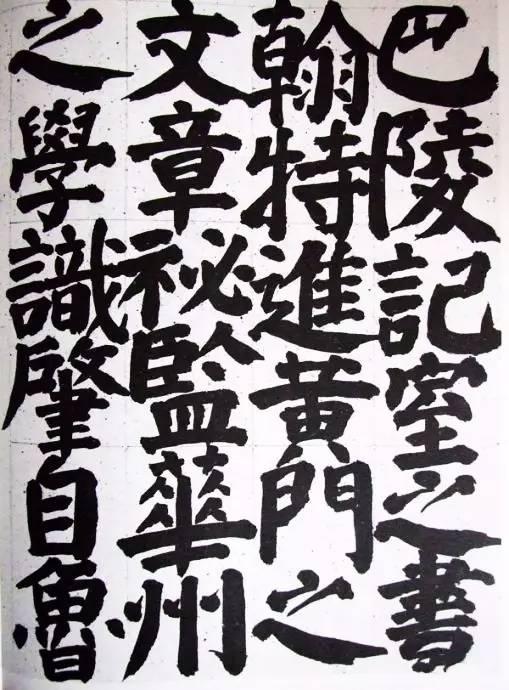 巴陵記室之書
翰特進黃門之
文章祕監華州
之學識肇自魯